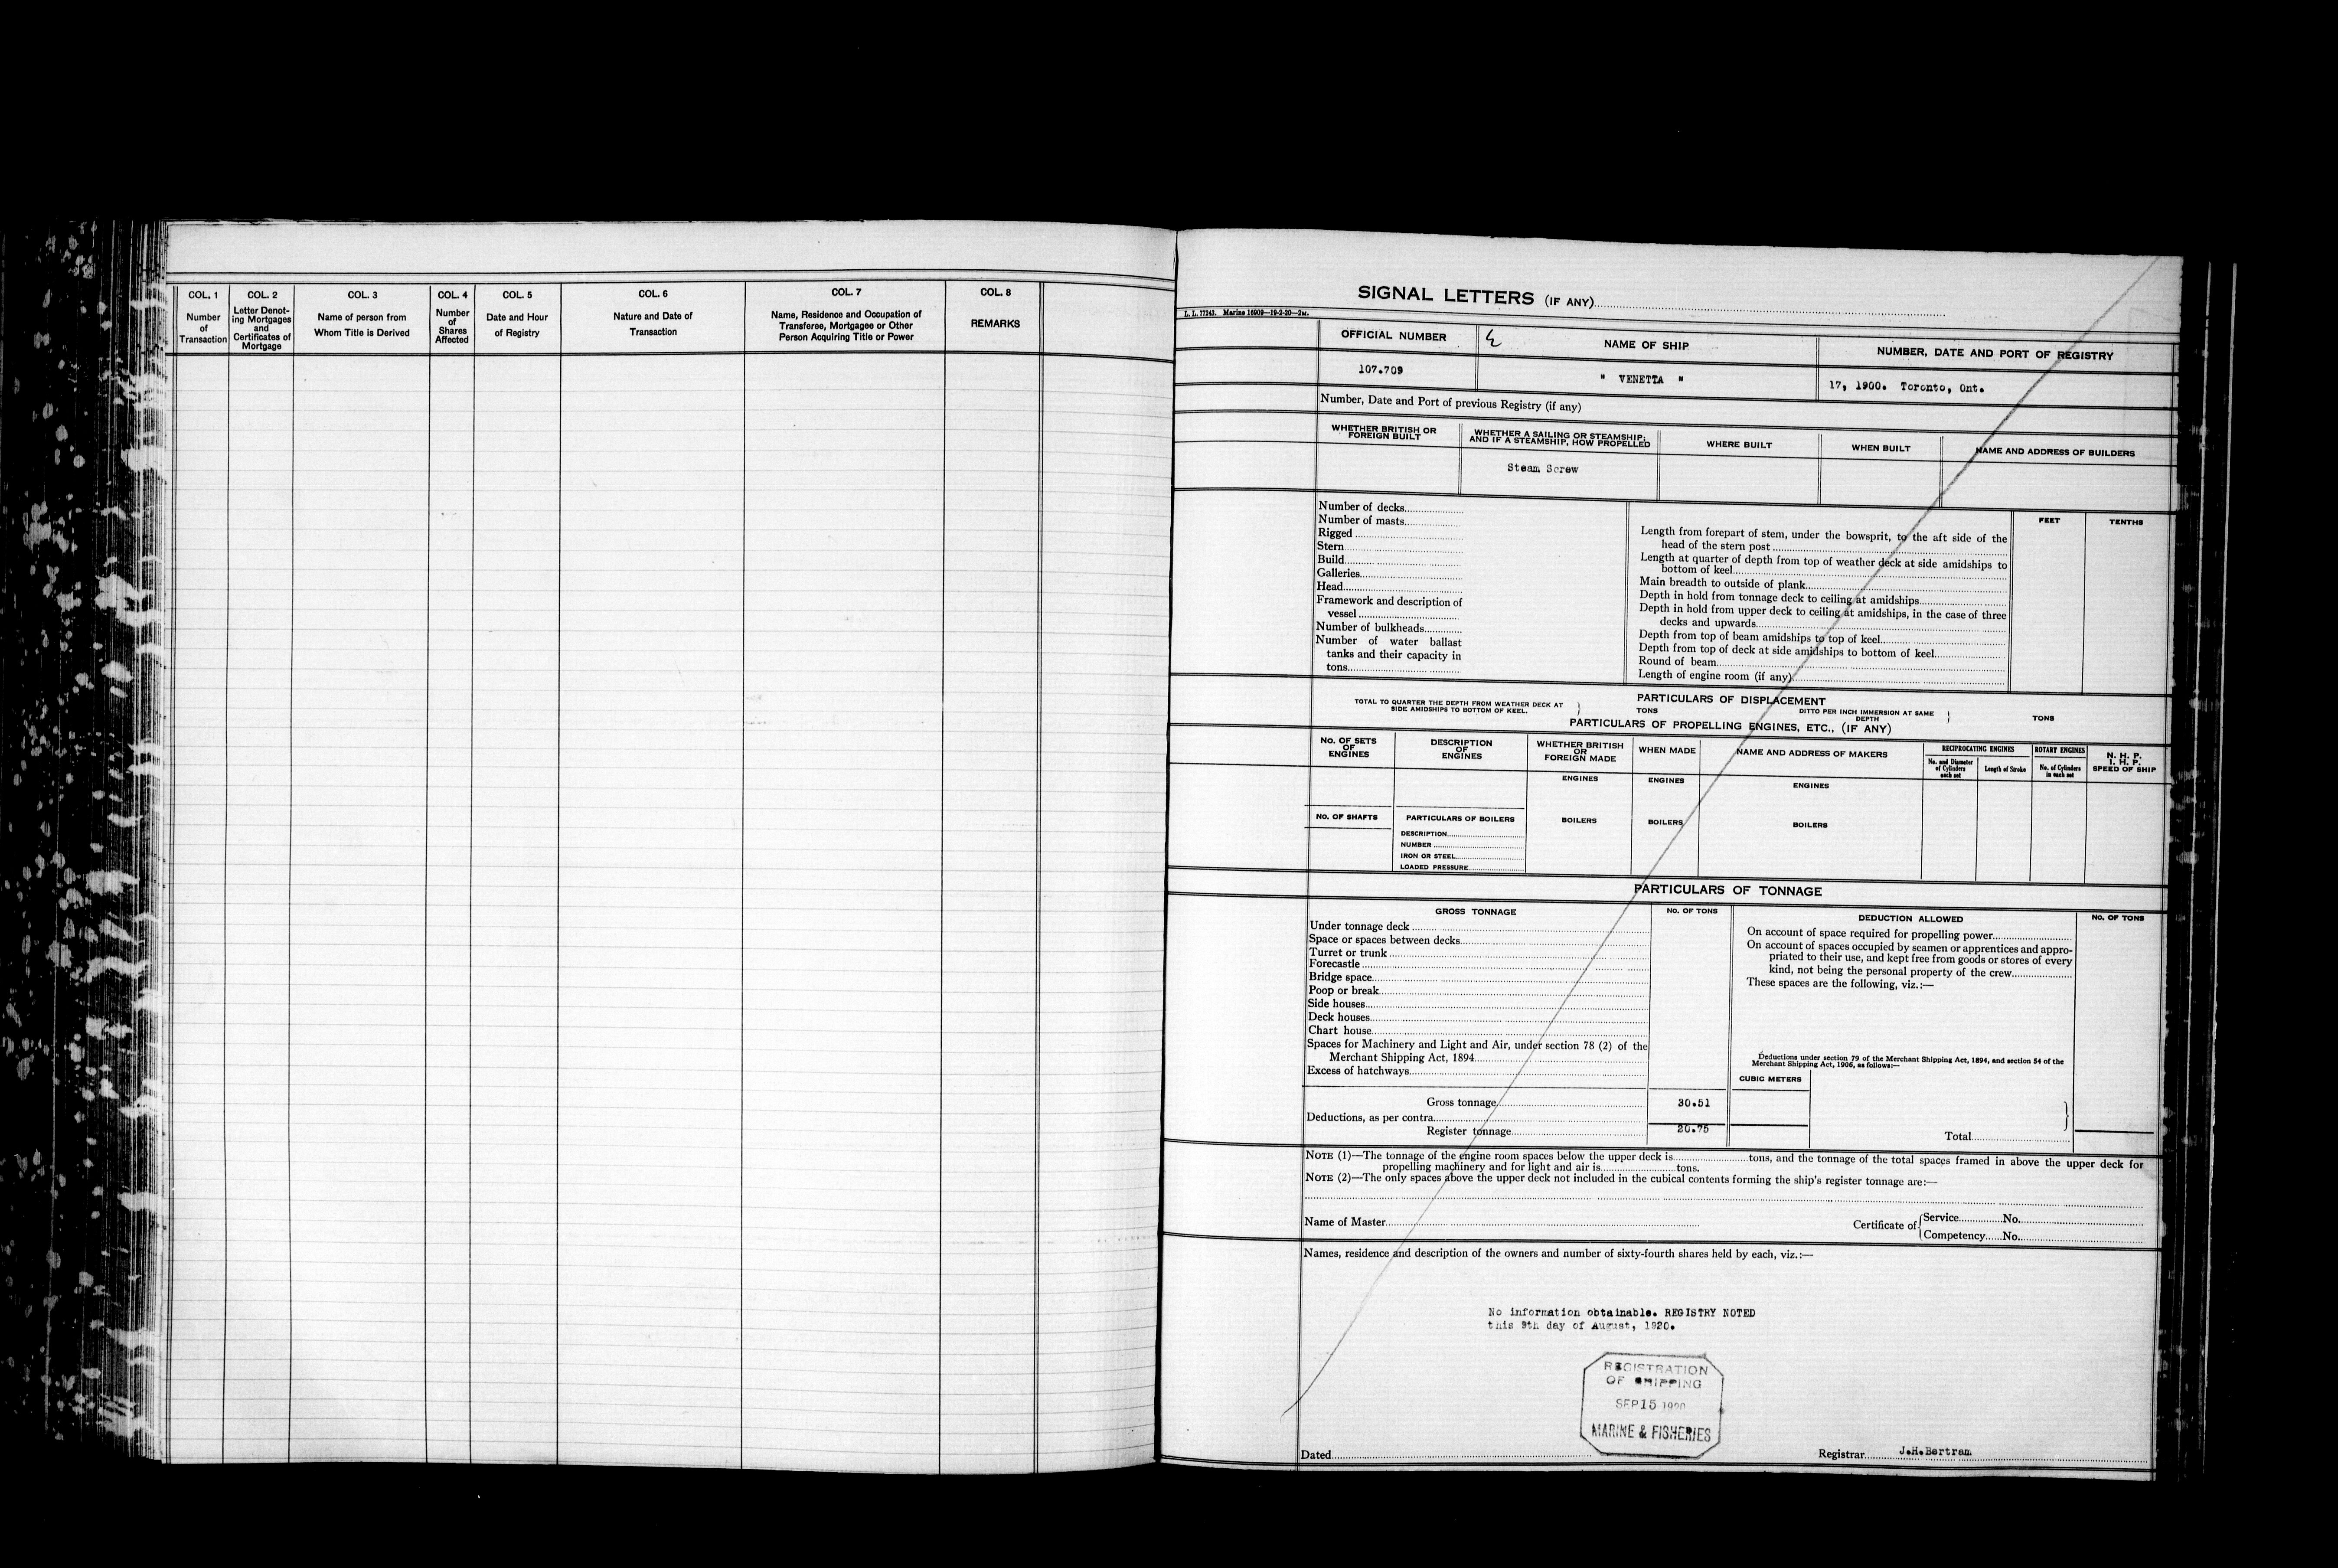 COL. 1
Number
of
Transaction
COL. 2
Letter Denot-
ing Mortgages
and
Certificates of
Mortgage
COL. 3
Name of person from
Whom Title is Derived
COL. 4
Number
of
Shares
Affected
COL. 5
Date and Hour
of Registry
COL. 6
Nature and Date of
Transaction
COL. 7
Name, Residence and Occupation of
Transferee, Mortgagee or Other
Person Acquiring Title or Power
COL. 8
REMARKS
SIGNAL LETTERS (IF ANY)
L. L. 77243. Marine 16909—19-2-20—2M.
OFFICIAL NUMBER
107.709
NAME OF SHIP
" VENETTA "
NUMBER, DATE AND PORT OF REGISTRY
17, 1900. Toronto, Ont.
Number, Date and Port of previous Registry (if any)
WHETHER BRITISH OR
FOREIGN BUILT
WHETHER A SAILING OR STEAMSHIP;
AND IF A STEAMSHIP, HOW PROPELLED
Steam Screw
WHERE BUILT
WHEN BUILT
NAME AND ADDRESS OF BUILDERS
Number of decks
Number of masts
Rigged
Stern
Build
Galleries
Head
Framework and description of
vessel
Number of bulkheads
Number of water ballast
tanks and their capacity in
tons
FEET
TENTHS
Length from forepart of stem, under the bowsprit, to the aft side of the
head of the stern post
Length at quarter of depth from top of weather deck at side amidships to
bottom of keel
Main breadth to outside of plank
Depth in hold from tonnage deck to ceiling at amidships
Depth in hold from upper deck to ceiling at amidships, in the case of three
decks and upwards
Depth from top of beam amidships to top of keel
Depth from top of deck at side amidships to bottom of keel
Round of beam
Length of engine room (if any)
PARTICULARS OF DISPLACEMENT
TOTAL TO QUARTER THE DEPTH FROM WEATHER DECK AT
SIDE AMIDSHIPS TO BOTTOM OF KEEL.
TONS
DITTO PER INCH IMMERSION AT SAME
DEPTH
TONS
PARTICULARS OF PROPELLING ENGINES, ETC., (IF ANY)
NO. OF SETS
OF
ENGINES
DESCRIPTION
OF
ENGINES
WHETHER BRITISH
OR
FOREIGN MADE
WHEN MADE
NAME AND ADDRESS OF MAKERS
RECIPROCATING ENGINES
No. and Diameter
of Cylinders
each set
Length of Stroke
ROTARY ENGINES
No. of Cylinders
in each set
N. H. P.
I. H. P.
SPEED OF SHIP
ENGINES
ENGINES
ENGINES
NO. OF SHAFTS
PARTICULARS OF BOILERS
BOILERS
BOILERS
BOILERS
DESCRIPTION
NUMBER
IRON OR STEEL
LOADED PRESSURE
PARTICULARS OF TONNAGE
GROSS TONNAGE
NO. OF TONS
DEDUCTION ALLOWED
NO. OF TONS
Under tonnage deck
Space or spaces between decks
Turret or trunk
Forecastle
Bridge space
Poop or break
Side houses
Deck houses
Chart house
Spaces for Machinery and Light and Air, under section 78 (2) of the
Merchant Shipping Act, 1894
Excess of hatchways
Gross tonnage 30.51
Deductions, as per contra
Register tonnage 20.75
On account of space required for propelling power
On account of spaces occupied by seamen or apprentices and appro-
priated to their use, and kept free from goods or stores of every
kind, not being the personal property of the crew
These spaces are the following, viz.:—
Deductions under section 79 of the Merchant Shipping Act, 1894, and section 54 of the
Merchant Shipping Act, 1906, as follows:—
CUBIC METERS
Total
NOTE (1)—The tonnage of the engine room spaces below the upper deck is tons, and the tonnage of the total spaces framed in above the upper deck for
propelling machinery and for light and air is tons.
NOTE (2)—The only spaces above the upper deck not included in the cubical contents forming the ship's register tonnage are:—
Name of Master
Certificate of
Service No.
Competency No.
Names, residence and description of the owners and number of sixty-fourth shares held by each, viz.:—
No information obtainable. REGISTRY NOTED
this 9th day of August, 1920.
REGISTRATION
OF SHIPPING
SEP 15 1920
MARINE & FISHERIES
Dated
Registrar J.H.Bertram